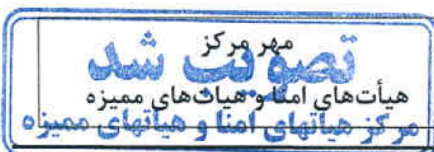 مهر مرکز
تصویب شد
هیأت‌های امنا و هیات‌های ممیزه
مرکز هیاتهای امنا و هیاتهای ممیزه